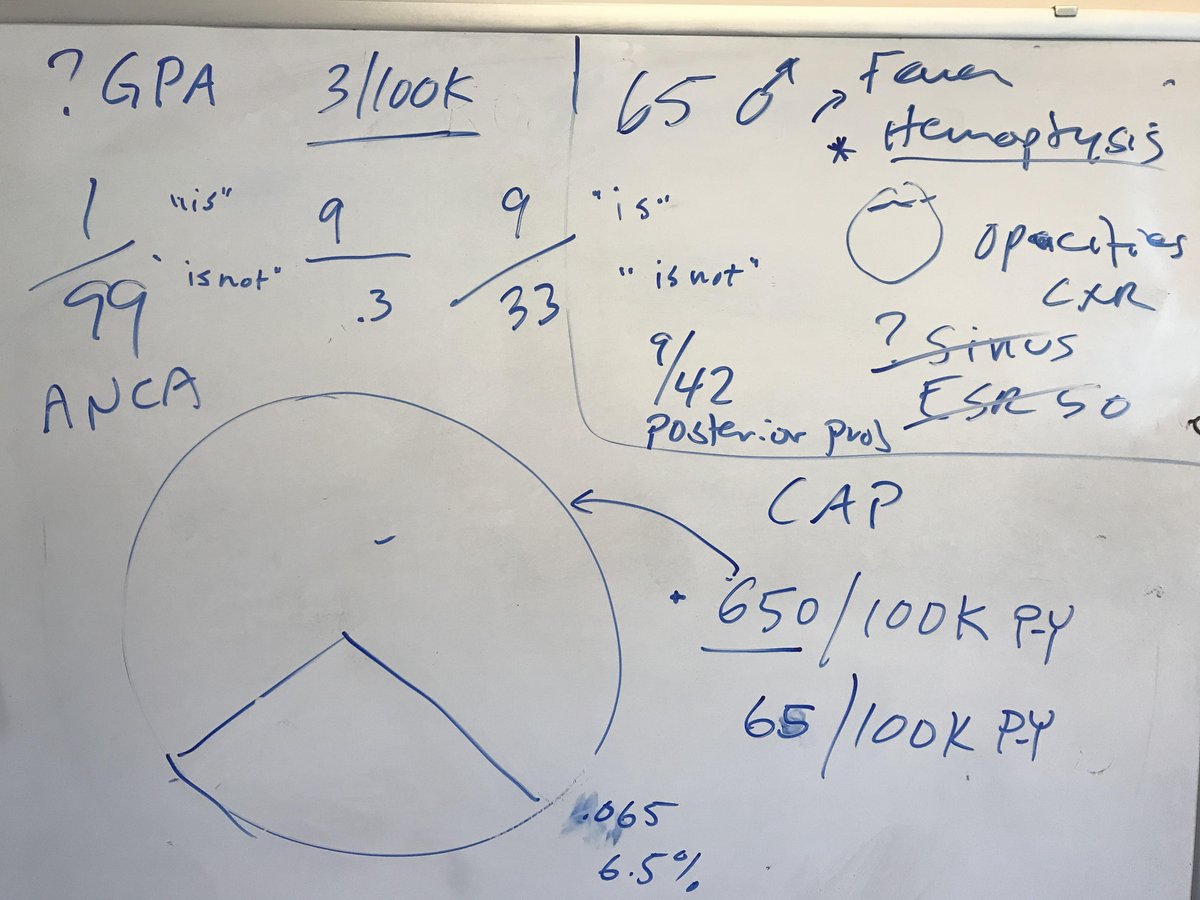 ? GPA 3/100K
1 "is" 9 9 "is"
99 "is not" .3 33 "is not"
ANCA
65 ♂ Fever
* Hemoptysis
Opacities
CXR
? Sinus
ESR 50
9/42
Posterior prob
CAP
650/100K P-Y
65/100K P-Y
.065
6.5%